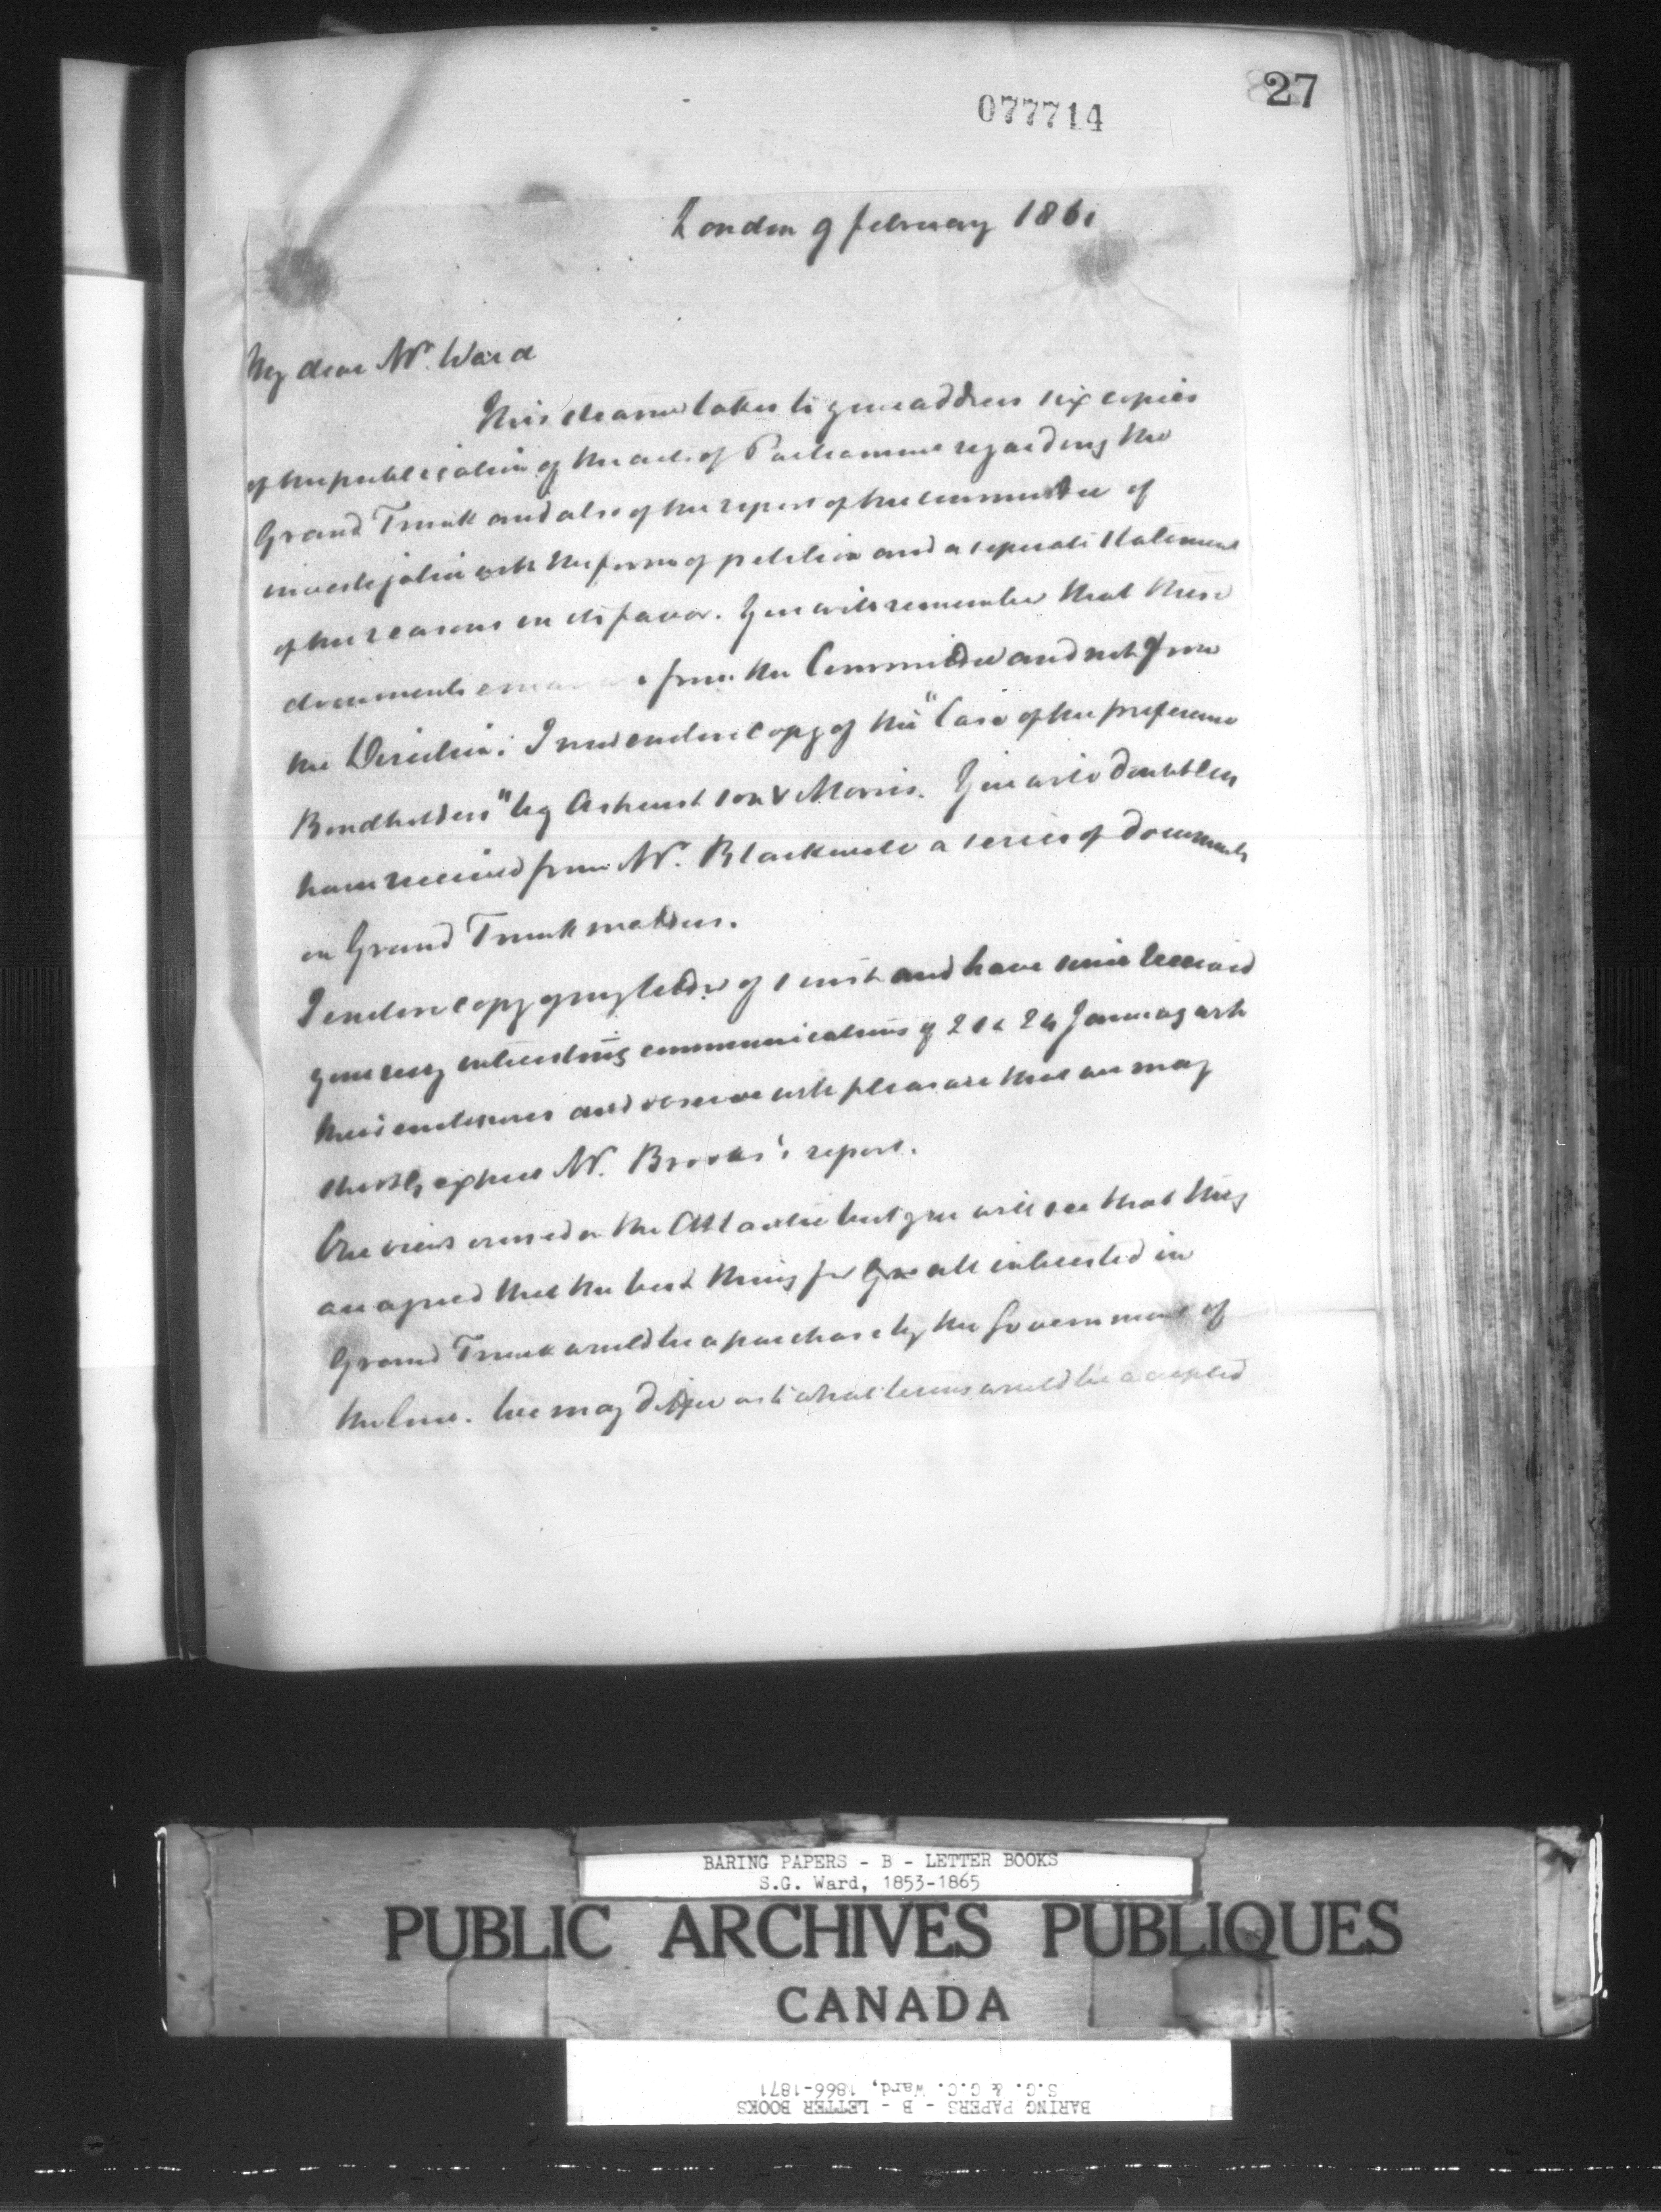 27
077714
London 9 february 1861
My dear Mr. Ward
This steamer takes to your address six copies
of the publication of the acts of Parliament regarding the
Grand Trunk and also of the report of the committee of
investigation with the form of petition and a seperate statement
of the reasons in its favor. You will remember that these
documents from the Committee and not from
the Direction. I now enclose copy of the "Case of the preference
Bondholders" by Ashurst son & Morris. You will doubtless
have received from Mr. Blackwell a series of documents
on Grand Trunk matters.
I enclose copy of my letter of 1 inst and have since received
your very interesting communications of 21 & 24 January with
their enclosures and observe with pleasure that we may
shortly expect Mr. Brooks's report.
Our views crossed on the Atlantic but you will see that they
are agreed that the best thing for all interested in
Grand Trunk would be a purchase by the Government of
the line. We may differ as to what terms would be accepted
BARING PAPERS - B - LETTER BOOKS
S.G. Ward, 1853-1865
PUBLIC ARCHIVES PUBLIQUES
CANADA
BARING PAPERS - B - LETTER BOOKS
S.G. & G.C. Ward, 1866-1871